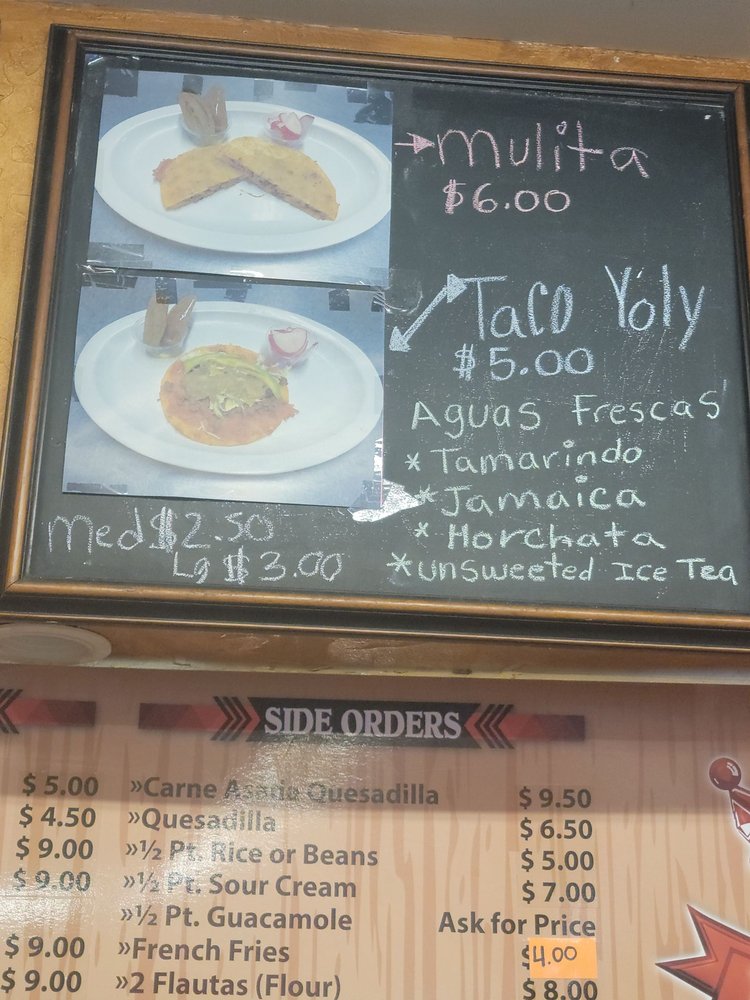 mulita
$6.00
Taco Yoly
$5.00
Aguas Frescas
* Tamarindo
* Jamaica
* Horchata
* unsweeted Ice Tea
Med $2.50
Lg $3.00
SIDE ORDERS
$5.00 »Carne Asada Quesadilla $9.50
$4.50 »Quesadilla $6.50
$9.00 »½ Pt. Rice or Beans $5.00
$9.00 »½ Pt. Sour Cream $7.00
»½ Pt. Guacamole Ask for Price
$9.00 »French Fries $4.00
$9.00 »2 Flautas (Flour) $8.00